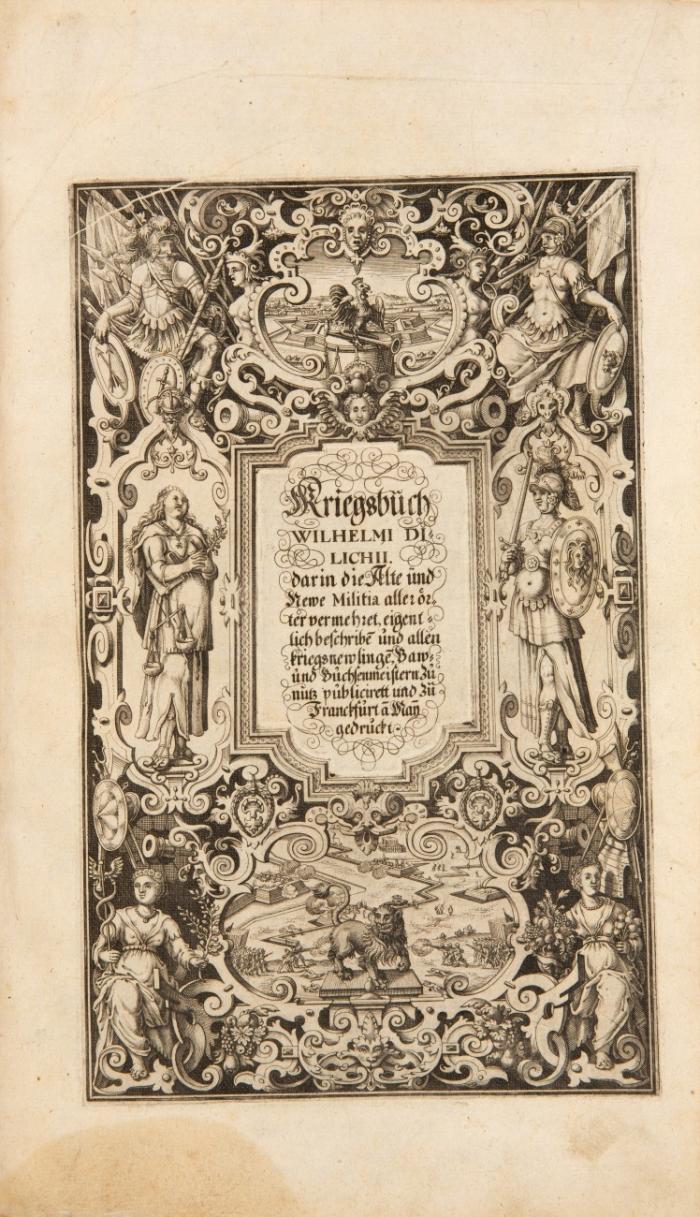 Kriegsbüch
WILHELMI DI
LICHII.
darin die Alte und
Newe Militia aller ör-
ter vermehret, eigent-
lich beschribē und allen
kriegsnewlingē, Baw-
und Büchsenmeistern zü
nütz publicirett und zü
Franckfürt ā Maÿ
gedruckt.